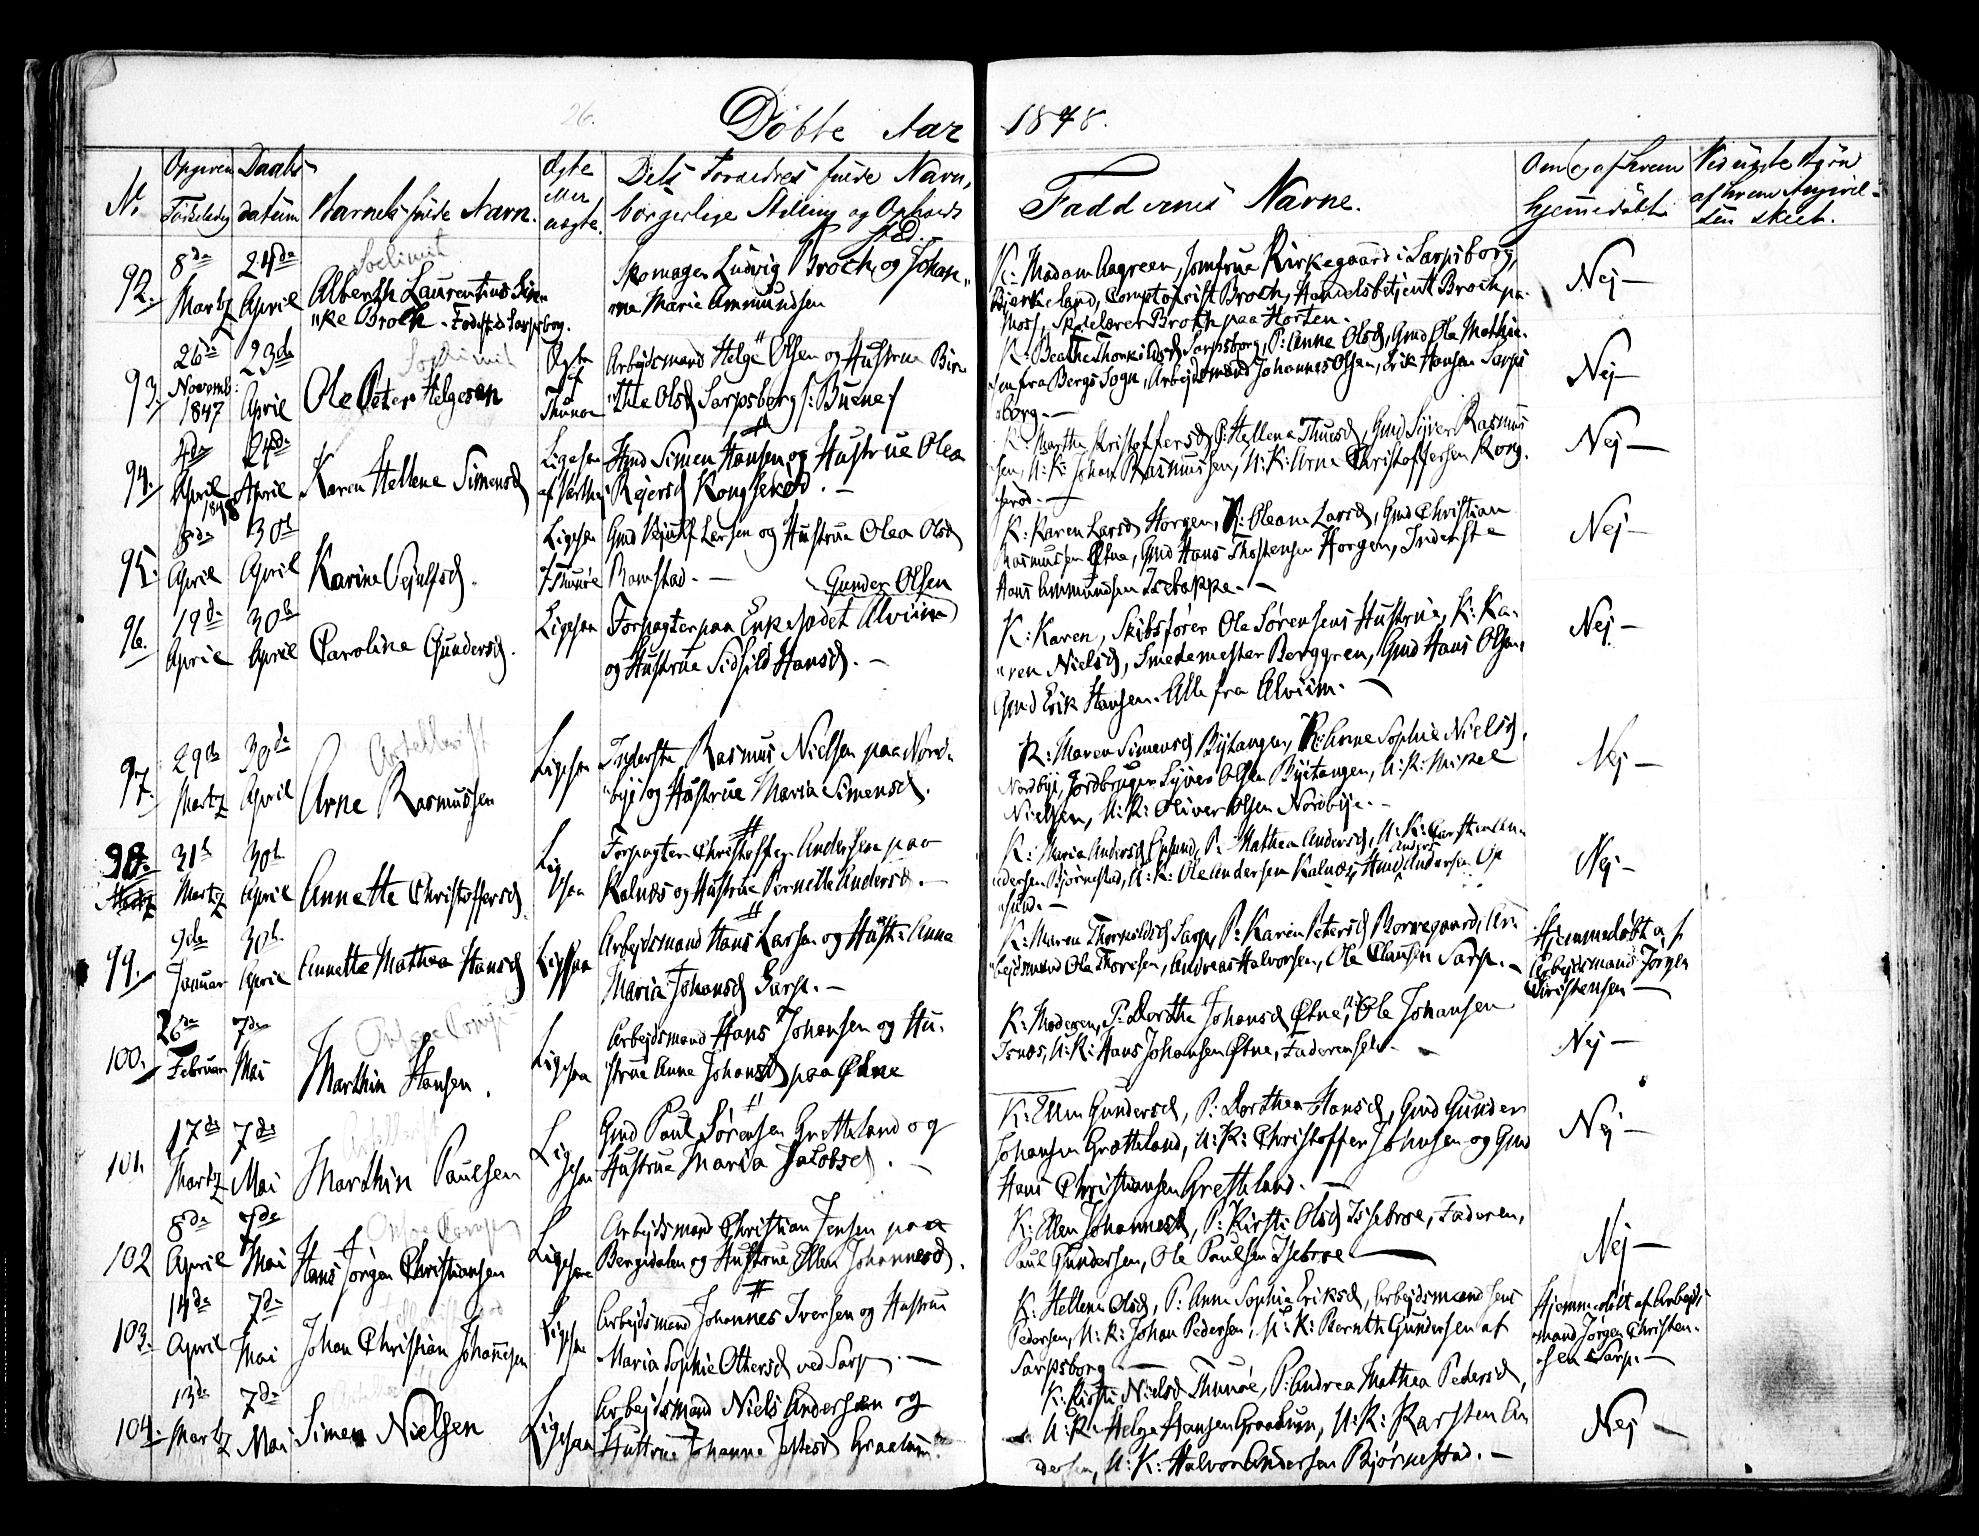 26.
Döbte Aar 1848.
No
Daabs
datum
Barnets fulde Navn.
Ægte eller uægte.
Dets Forældres fulde Navn,
borgerlige Stilling og Opholds
sted.
Faddernes Navne.
Om og af hvem
hjemmedöbt
92. 8de Martz 24de April
Alberth Laurentius
Broch. Födt i Sarpsborg.
Skomager Ludvig Broch og Johan-
na Marie Ammundsen
K: Madam Aagreen, Jomfrue Kirkegaard i Sarpsborg,
Bierkeland, Comptoirist Broch, Handelsbetjent Broch paa
Moss, Skolelærer Broch paa Horten.
Nej
93. 26de Novemb: 1847 23de April
Ole Peter Helgesen
Ægte af Thunøe
Arbejdsmand Helge Olsen og Hustrue Bir-
the Olsd Sarpsborg
K: Beathe Thorkildsd Sarpsborg, P: Anne Olsd, Gmd Ole Mathie-
sen fra Bergs Sogn, Arbejdsmand Johannes Olsen, Erik Hansen Sarps
borg.
Nej
94. 4de April 1848 24de April
Karen Hellene Simensd
Ligesaa
Hmd Simen Hansen og Hustrue Olea
Rejersd Kongserød.
K: Marthe Kristoffersd, P: Hellene Thuesd, Gmd Syver Rasmus
sen, U: K: Johan Rasmussen, U: K: Arne Christoffersen Kong-
serød.
Nej
95. 8de April 30te April
Karine Vejulfsd.
Ligesaa Thunøe
Gmd Vejulf Larsen og Hustrue Olea Olsd
Romstad.
K: Karen Larsd Horgen, P: Oleane Larsd, Gmd Christian
Rasmussen Øtne, Gmd Hans Thostensen Horgen, Inderste
Hans Ammundsen
Nej
96. 19de April 30te April
Caroline Gundersd.
Ligesaa
Gunder Olsen
Forpagter paa Enkesædet Alvim
og Hustrue Sidsild Hansd.
K: Karen, Skibsfører Ole Sørensens Hustrue, K: Ka-
ren Nielsd, Smedemester Berggren, Gmd Hans Olsen,
Gmd Erik Hansen. Alle fra Alvim.
Nej
97. 29de Martz 30te April
Arne Rasmussen
Ligesaa
Inderste Rasmus Nielsen paa Nord-
bye og Hustrue Maria Simensd.
K: Maren Simensd Bytangen, P: Anne Sophie Nielsd,
Nordbye, Jordbruger Syver Olsen Bytangen, U: K: Mikel
Nielsen, U: K: Oliver Olsen Nordbye.
Nej
98. 31te Martz 30te April
Annette Christoffersd
Ligesaa
Forpagter Christoffer Andersen paa
Kalnæs og Hustrue Pernille Andersd.
K: Maria Andersd, P: Mathea Andersd, U: K: Carsten An-
dersen Bjørnestad, U: K: Ole Andersen Kalnæs, Hmd Anders Andersen
sund.
Nej
99. 9de Januar 30te April
Annette Mathea Hansd
Ligesaa
Arbejdsmand Hans Larsen og Hust: Anne
Maria Johansd Sarp.
K: Maren Sarp, P: Karen Petersd Borregaard, Ar-
bejdsmand Ole Thoresen, Andreas Halvorsen, Ole Clausen Sarp.
Hjemmedöbt af
Arbejdsmand Jørgen
Christensen
100. 26de Februar 7de Mai
Marthin Hansen.
Ligesaa
Arbejdsmand Hans Johansen og Hu-
strue Anne Johansd paa Øtne
K: Moderen, P: Dorthe Johansd Øtne, Ole Johansen
Isnæs, U: K: Hans Johansen Øtne, Faderen selv.
Nej
101. 17de Martz 7de Mai
Marthin Paulsen
Ligesaa
Gmd Paul Sørensen Gretteland og
Hustrue Maria Jacobsd.
K: Ellen Gundersd, P: Dorthea Hansd, Gmd Gunder
Johansen Gretteland, U: K: Christoffer Johnsen og Gmd
Hans Christiansen Gretteland.
Nej
102 8de April 7de Mai
Hans Jørgen Christiansen
Ligesaa
Arbejdsmand Christian Jensen paa
Bergsdalen og Hustrue Ellen Johannesd.
K: Ellen Johannesd, P: Kirsti Olsd Isebroe, Faderen,
Paul Gundersen, Ole Paulsen Isebroe
Nej
103. 14de April 7de Mai
Johan Christian Johannesen
Ligesaa
Arbejdsmand Johannes Iversen og Hustrue
Maria Sophie Othersd ved Sarp.
K: Hellene Olsd, P: Anne Sophie Eriksd, Arbejdsmand Jens
Pedersen, U: K: Johan Pedersen, U: K: Bernth Gundersen af
Sarpsborg
Hjemmedöbt af Arbejds
mand Jørgen Christen-
sen Sarp.
104. 13de Martz 7de Mai
Simen Nielsen
Ligesaa
Arbejdsmand Niels Andersen og
Hustrue Johanne Graalum.
K: Kirsti Nielsd Thunøe, P: Andrea Mathea Pedersd,
U: K: Helge Hansen Graalum, U: K: Karsten An
dersen, U: K: Halvor Andersen Bjørnestad.
Nej